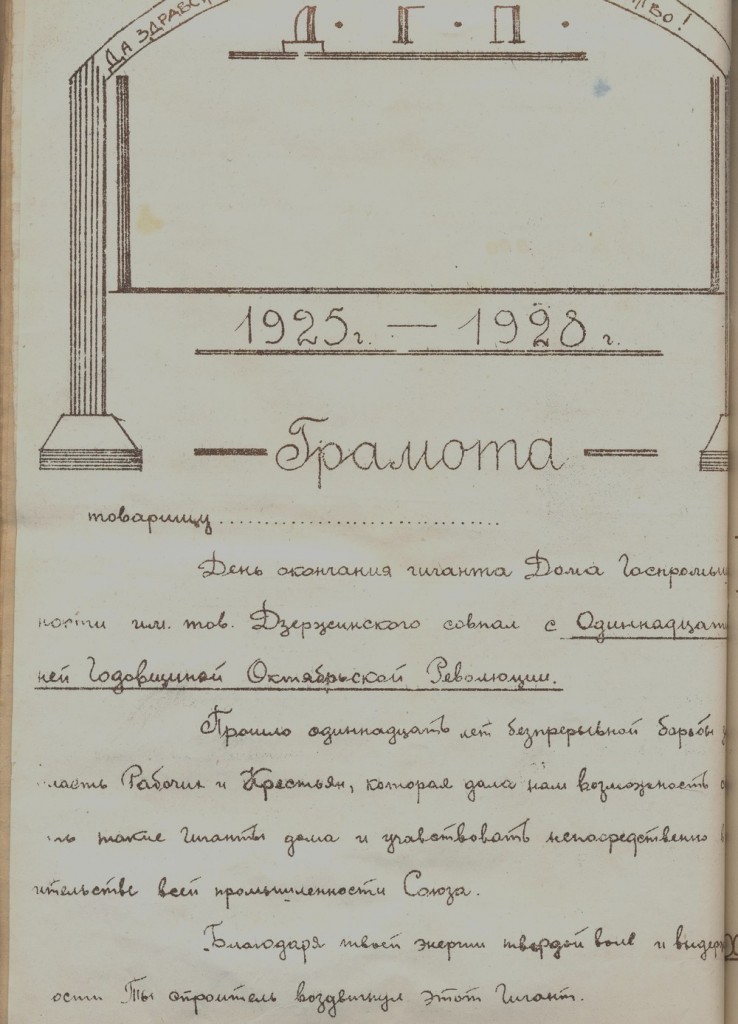 Да здравс
тво!
Д. Г. П.
1925г. — 1928г.
— Грамота —
товарищу ...............................
День окончания гиганта Дома Госпромыш
ности им. тов. Дзержинского совпал с Одиннадцат
ней Годовщиной Октябрьской Революции.
Прошло одиннадцать лет безпрерывной борьбы
власть Рабочих и Крестьян, которая дала нам возможность
такие гиганты дома и учавствовать непосредственно в
ительстве всей промышленности Союза.
Благодаря твоей энергии твердой воле и выдерж
ости Ты строитель воздвигнул этот Гигант.